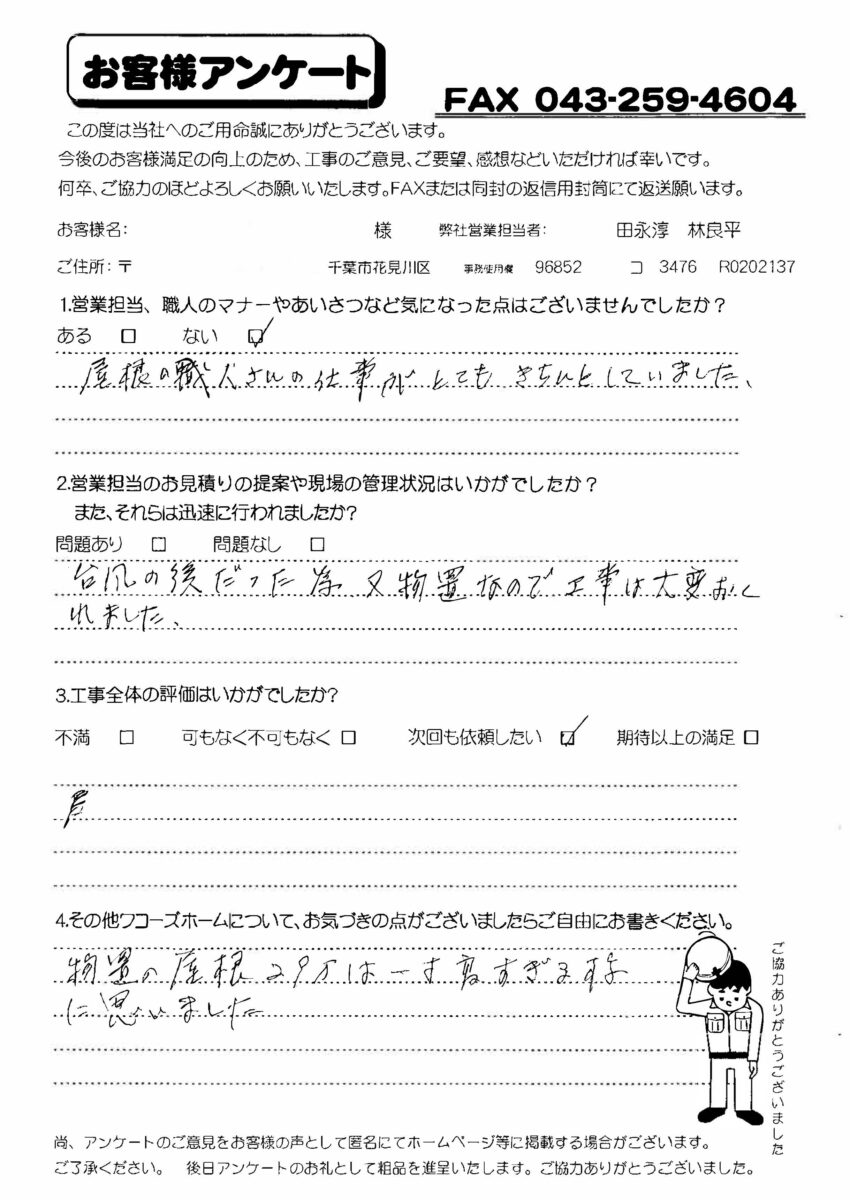 お客様アンケート
FAX 043-259-4604
この度は当社へのご用命誠にありがとうございます。
今後のお客様満足の向上のため、工事のご意見、ご要望、感想などいただければ幸いです。
何卒、ご協力のほどよろしくお願いいたします。FAXまたは同封の返信用封筒にて返送願います。
お客様名: 様 弊社営業担当者: 田永淳 林良平
ご住所:〒 千葉市花見川区 事務使用欄 96852 コ 3476 R0202137
1.営業担当、職人のマナーやあいさつなど気になった点はございませんでしたか?
ある □ ない ☑
屋根の職人さんの仕事がとてもきちんとしていました、
2.営業担当のお見積りの提案や現場の管理状況はいかがでしたか?
また、それらは迅速に行われましたか?
問題あり □ 問題なし □
台風の後だった為 又物置なので工事は大変おく
れました、
3.工事全体の評価はいかがでしたか?
不満 □ 可もなく不可もなく □ 次回も依頼したい ☑ 期待以上の満足 □
4.その他ワコーズホームについて、お気づきの点がございましたらご自由にお書きください。
物置の屋根29万は一寸高すぎますよ
に思いました
ご協力ありがとうございました
尚、アンケートのご意見をお客様の声として匿名にてホームページ等に掲載する場合がございます。
ご了承ください。 後日アンケートのお礼として粗品を進呈いたします。ご協力ありがとうございました。